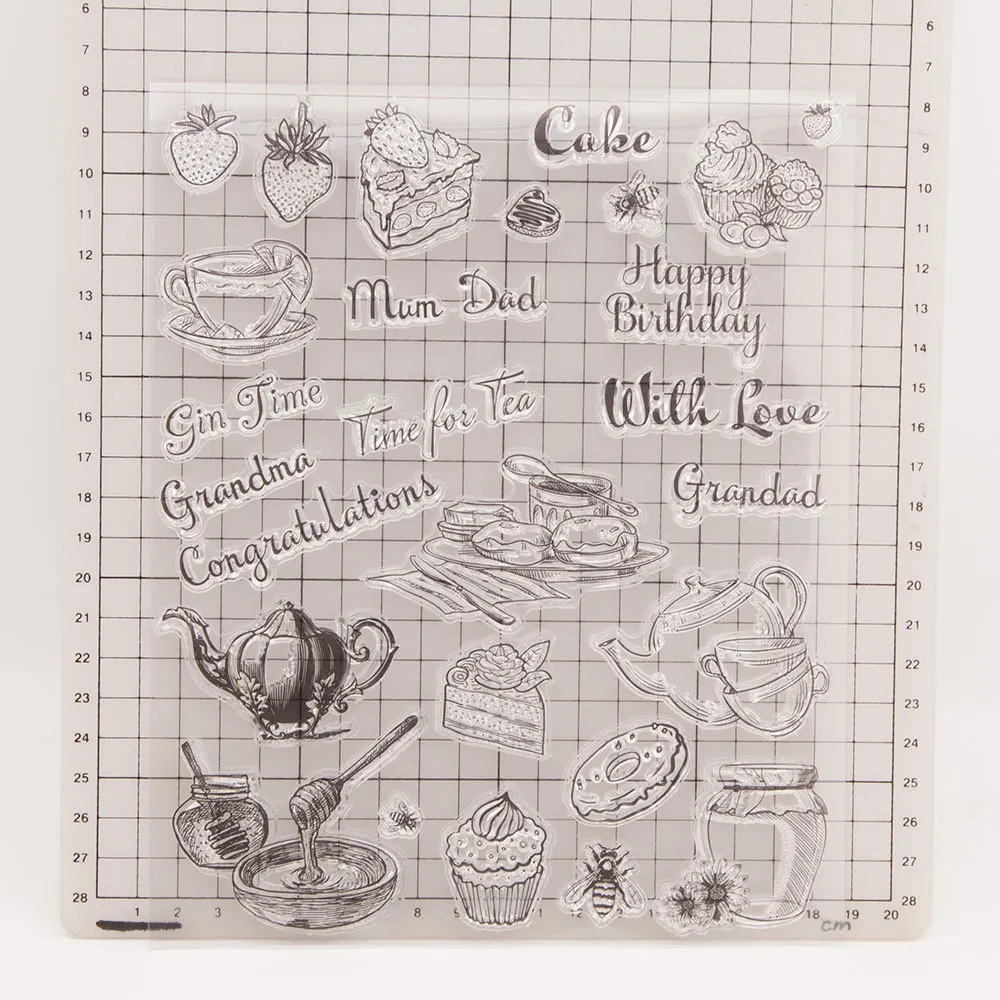 6 6
7 7
8 8
Cake
9 9
10 10
11 11
12 12
Happy
Mum Dad
13 13
Birthday
14 14
15 15
Gin Time
Time for Tea
With Love
16 16
17 17
Grandma
Grandad
18 18
Congratulations
19 19
20 20
21 21
22 22
23 23
24 24
25 25
26 26
27 27
28 28
1 2 3 8 9 18 19 20
cm